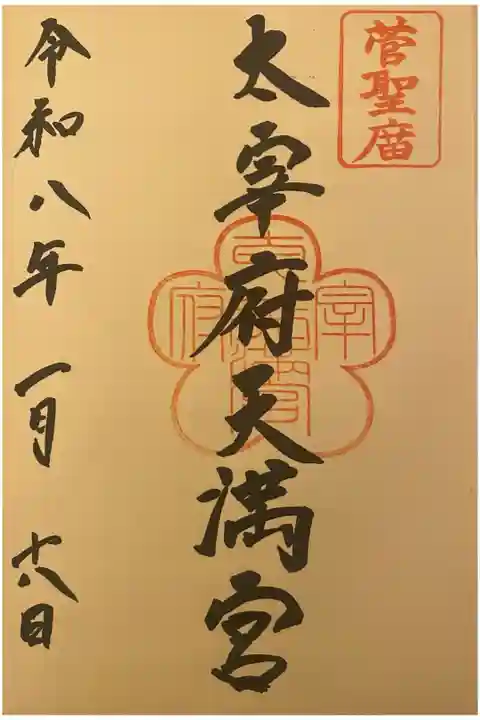 菅聖廟
太宰府天満宮
令和八年 一月 十八日